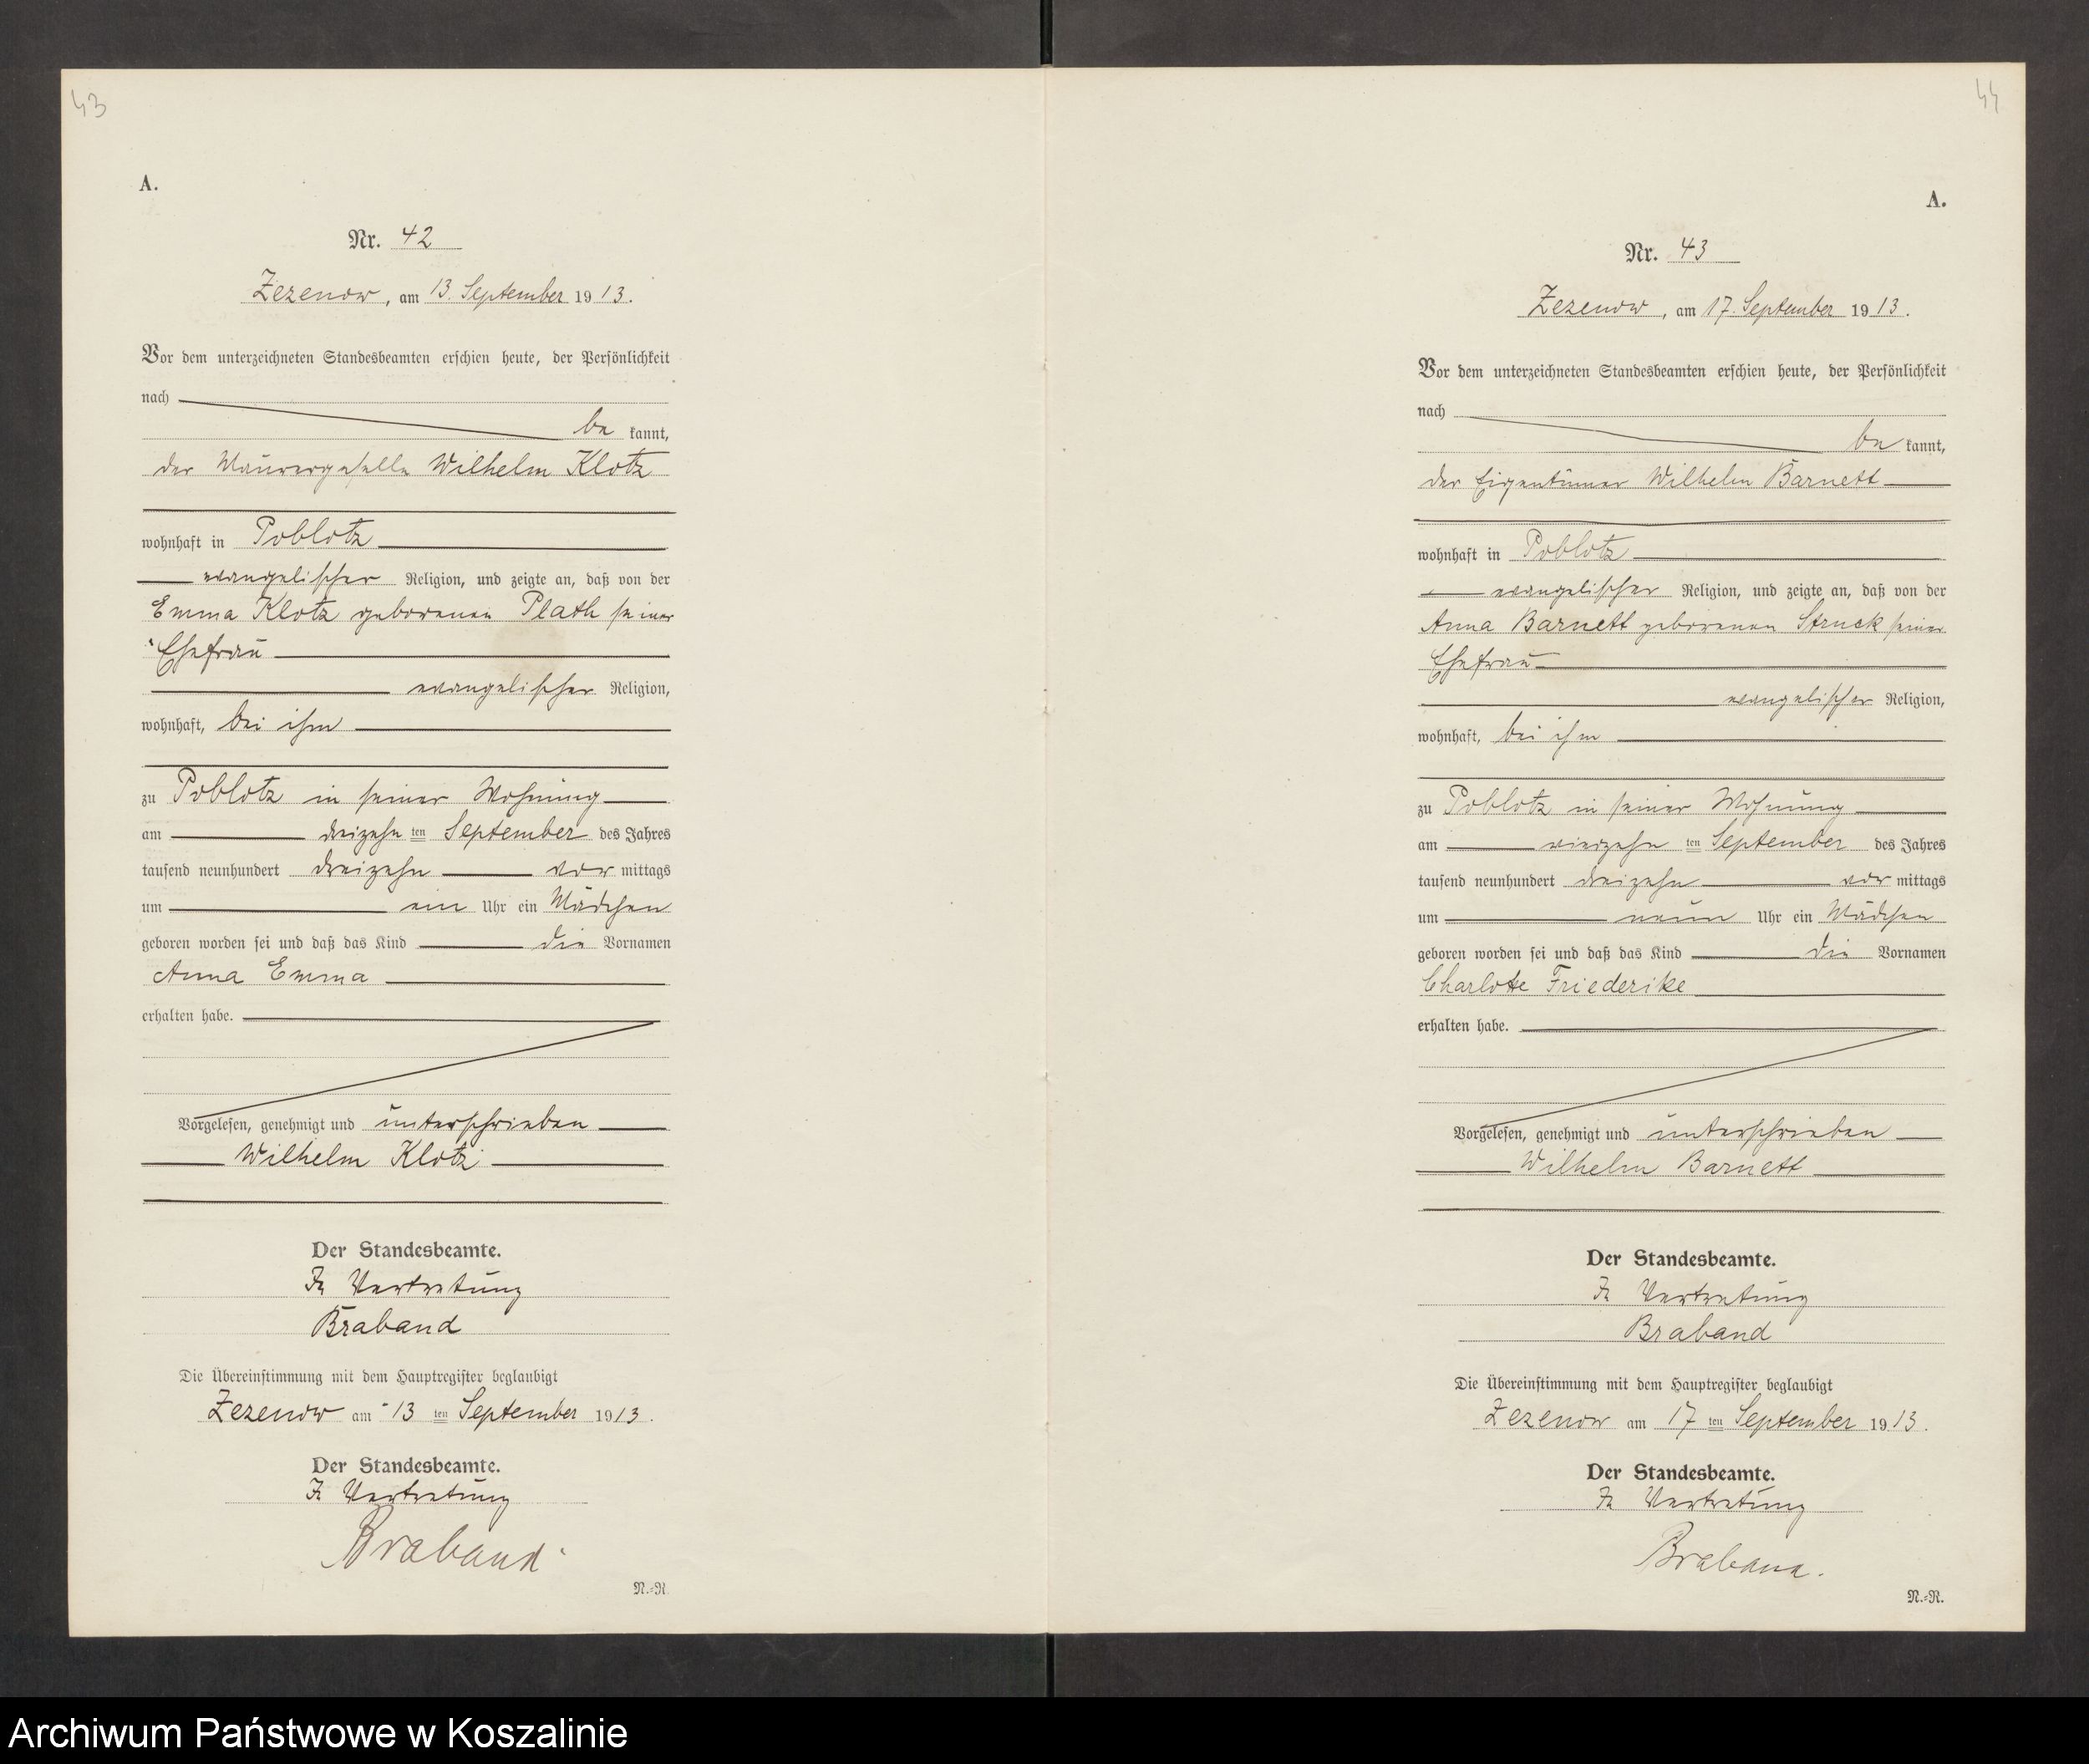 43
A.
Nr. 42
Zezenow, am 13. September 1913.
Vor dem unterzeichneten Standesbeamten erschien heute, der Persönlichkeit
nach
be kannt,
der Maurergeselle Wilhelm Klotz
wohnhaft in Poblotz
evangelischer Religion, und zeigte an, daß von der
Emma Klotz geborenen Plath seiner
Ehefrau
evangelischer Religion,
wohnhaft, bei ihm
zu Poblotz in seiner Wohnung
am dreizehn ten September des Jahres
tausend neunhundert dreizehn vor mittags
um ein Uhr ein Mädchen
geboren worden sei und daß das Kind die Vornamen
Anna Emma
erhalten habe.
Vorgelesen, genehmigt und unterschrieben
Wilhelm Klotz
Der Standesbeamte.
In Vertretung
Braband
Die Übereinstimmung mit dem Hauptregister beglaubigt
Zezenow am 13 ten September 1913.
Der Standesbeamte.
In Vertretung
Braband
N.=R.
44
A.
Nr. 43
Zezenow, am 17. September 1913.
Vor dem unterzeichneten Standesbeamten erschien heute, der Persönlichkeit
nach
be kannt,
der Eigentümer Wilhelm Barnett
wohnhaft in Poblotz
evangelischer Religion, und zeigte an, daß von der
Anna Barnett geborenen Struck seiner
Ehefrau
evangelischer Religion,
wohnhaft, bei ihm
zu Poblotz in seiner Wohnung
am vierzehn ten September des Jahres
tausend neunhundert dreizehn vor mittags
um neun Uhr ein Mädchen
geboren worden sei und daß das Kind die Vornamen
Charlotte Friederike
erhalten habe.
Vorgelesen, genehmigt und unterschrieben
Wilhelm Barnett
Der Standesbeamte.
In Vertretung
Braband
Die Übereinstimmung mit dem Hauptregister beglaubigt
Zezenow am 17 ten September 1913.
Der Standesbeamte.
In Vertretung
Braband.
N.=R.
Archiwum Państwowe w Koszalinie